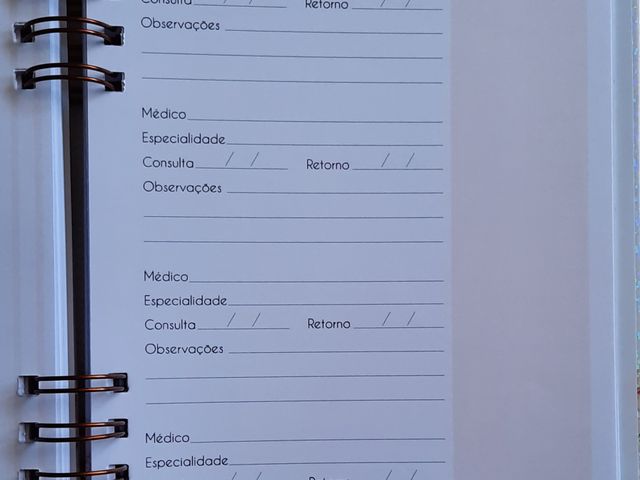 Consulta / / Retorno / /
Observações
Médico
Especialidade
Consulta / / Retorno / /
Observações
Médico
Especialidade
Consulta / / Retorno / /
Observações
Médico
Especialidade
/ / Retorno / /